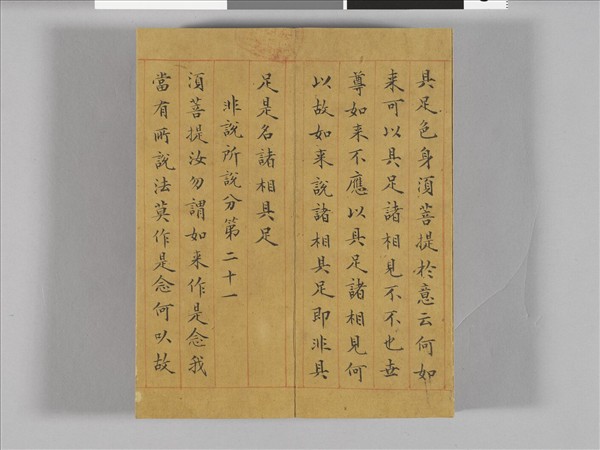 具足色身湏菩提於意云何如
来可以具足諸相見不不也世
尊如来不應以具足諸相見何
以故如来說諸相具足即非具
足是名諸相具足
非說所說分第二十一
湏菩提汝勿謂如来作是念我
當有所說法莫作是念何以故